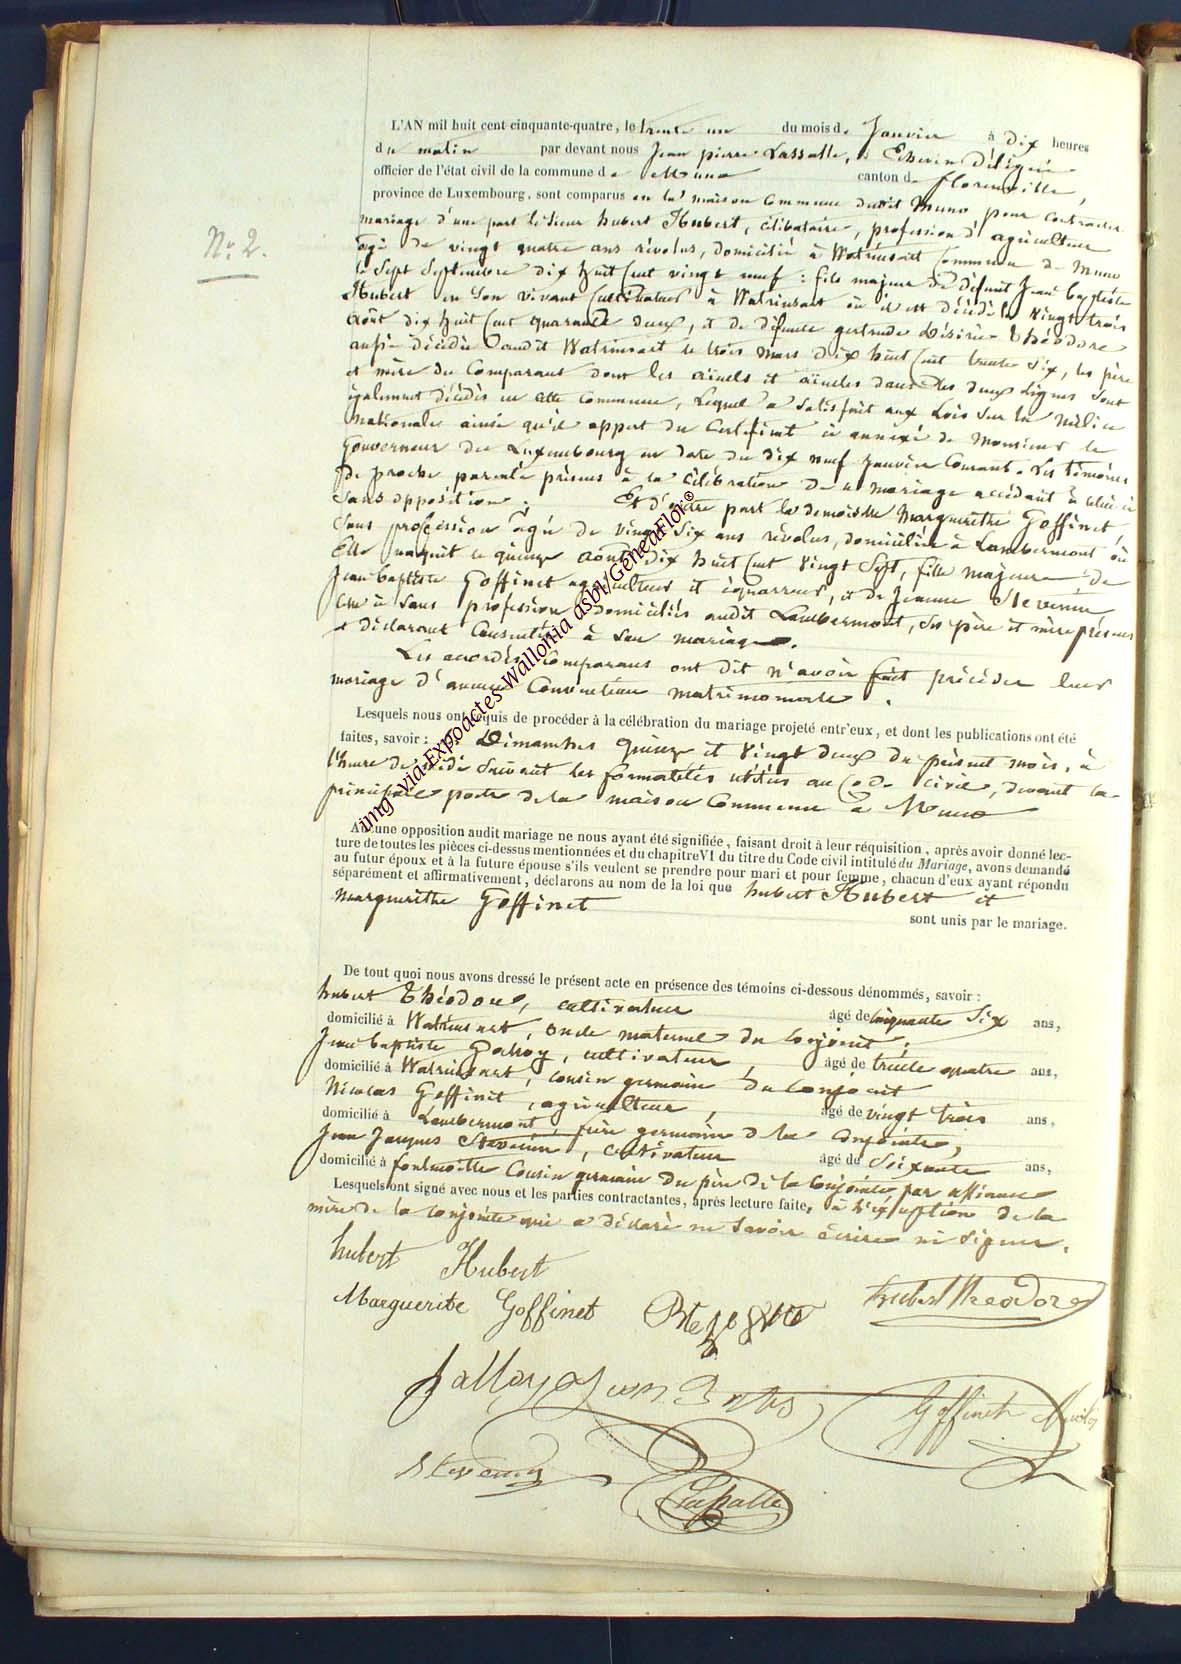 N° 2.
L'AN mil huit cent cinquante-quatre, le trente un du mois de Janvier à dix heures
du matin par devant nous Jean pierre Lassalle, Echevin Délégué
officier de l'état civil de la commune de Muno canton de florenville,
province de Luxembourg, sont comparus en la maison Commune dudit Muno, pour contracter
mariage d'une part le Sieur hubert Hubert, célibataire, profession d'agriculteur
agé de vingt quatre ans révolus, domicilié à Watrinsart Commune de Muno
le Sept Septembre dix huit Cent vingt neuf : fils majeur de défunt Jean baptiste
Hubert en Son vivant Cultivateur à Watrinsart où il est décédé le vingt trois
Août dix huit Cent quarante deux, et de défunte gertrude Désirée Théodore
aussi décédée audit Watrinsart le trois mars dix huit Cent trente Six, les père
et mère du Comparant dont les aïeuls et aïeules dans les deux lignes Sont
également décédés en cette Commune, Lequel a Satisfait aux Lois Sur la Milice
Nationale ainsi qu'il appert du Certificat ci annexé de Monsieur le
Gouverneur du Luxembourg en date du dix neuf Janvier Courant. Les témoins
de proche parenté présens à la Célébration de ce mariage accédant à celui ci
Sans opposition. Et d'autre part la demoiselle Marguerithe Goffinet,
Sans profession agée de vingt Six ans révolus, domiciliée à Lambermont où
Elle naquit le quinze Août dix huit Cent vingt Sept, fille majeure de
Jean baptiste Goffinet agriculteur et équarreur, et de Jeanne Stevenin
Sans profession domiciliés audit Lambermont, Ses père et mère présens
et déclarant Consentir à Son mariage.
Les accordés Comparans ont dit n'avoir fait précéder leur
mariage d'aucune Convention matrimoniale.
Lesquels nous ont requis de procéder à la célébration du mariage projeté entr'eux, et dont les publications ont été
faites, savoir : Les Dimanches quinze et vingt deux du présent mois, à
l'heure de midi Suivant les formalités au Code Civil, devant la
principale porte de la maison Commune à Muno
Aucune opposition audit mariage ne nous ayant été signifiée, faisant droit à leur réquisition, après avoir donné lec-
ture de toutes les pièces ci-dessus mentionnées et du chapitre VI du titre du Code civil intitulé du Mariage, avons demandé
au futur époux et à la future épouse s'ils veulent se prendre pour mari et pour femme, chacun d'eux ayant répondu
séparément et affirmativement, déclarons au nom de la loi que hubert Hubert et
Marguerithe Goffinet
sont unis par le mariage.
De tout quoi nous avons dressé le présent acte en présence des témoins ci-dessous dénommés, savoir :
hubert Théodore, cultivateur âgé de Cinquante Six ans,
domicilié à Watrinsart, oncle maternel du Conjoint,
Jean baptiste Galhoy, cultivateur, âgé de trente quatre ans,
domicilié à Watrinsart, cousin germain du Conjoint
Nicolas Goffinet, agriculteur, âgé de vingt trois ans,
domicilié à Lambermont, frère germain de la Conjointe,
Jean Jacques Stevenin, Cultivateur âgé de Soixante ans,
domicilié à fontenoille Cousin germain du père de la Conjointe par alliance
Lesquels ont signé avec nous et les parties contractantes, après lecture faite, à l'exception de la
mère de la Conjointe qui a déclaré ne Savoir écrire ni Signer.
hubert Hubert
Marguerite Goffinet
hubert Theodore
Goffinet
Stevenin
Lassalle
img via Expoactes-Wallonia asbl/GeneaFlor©